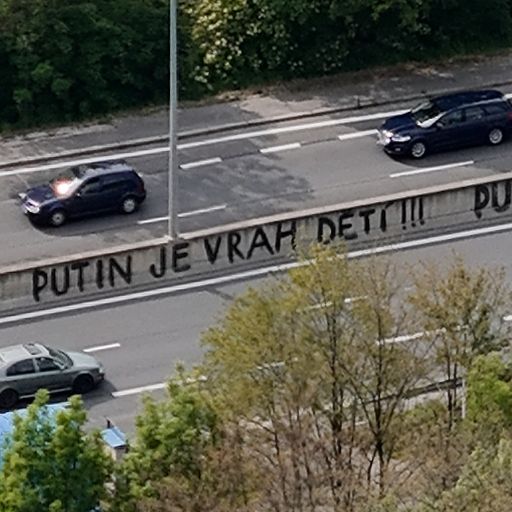 PUTIN JE VRAH DETÍ!!! PU